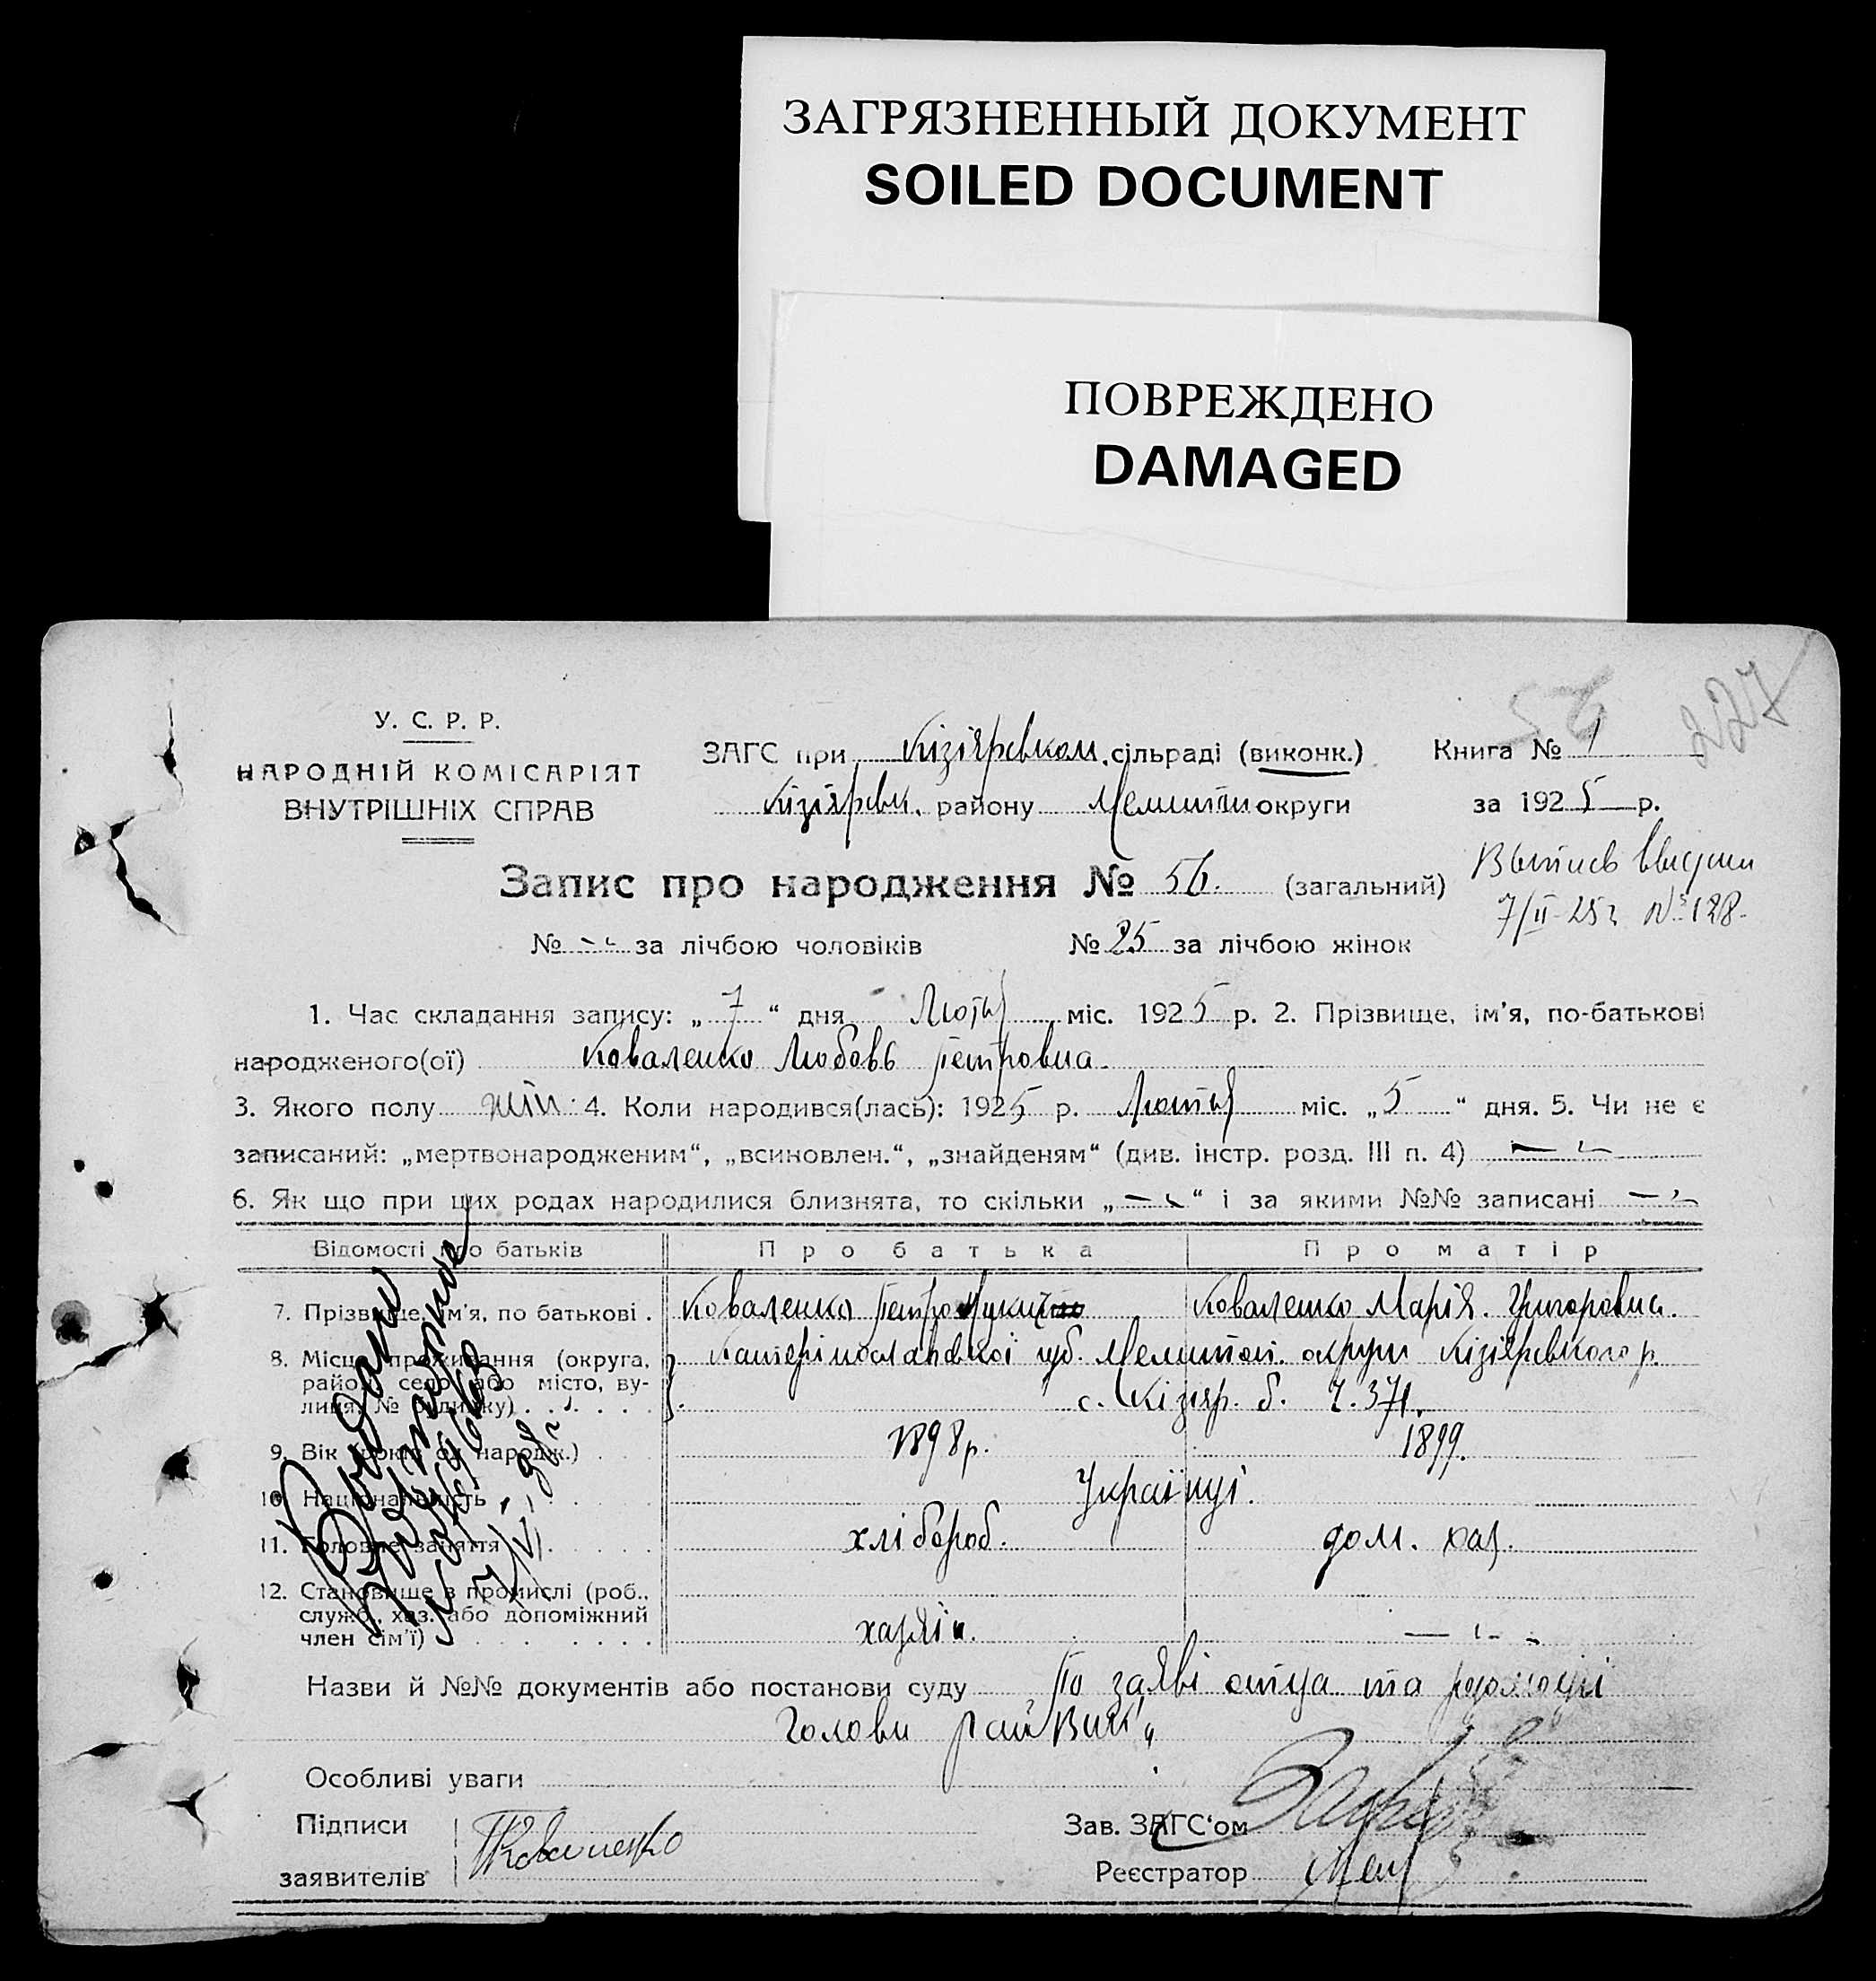 ЗАГРЯЗНЕННЫЙ ДОКУМЕНТ
SOILED DOCUMENT
ПОВРЕЖДЕНО
DAMAGED
56 227
У. С. Р. Р.
НАРОДНІЙ КОМІСАРІЯТ
ВНУТРІШНІХ СПРАВ
ЗАГС при Кізіярвском. сільраді (виконк.) Книга № 1
Кізіярвск. району Мелитоп округи за 1925 р.
Запис про народження № 56. (загальний)
Выпись выдана
7/II-25 г. № 128-
№ за лічбою чоловіків № 25 за лічбою жінок
1. Час складання запису: „7“ дня Лютня міс. 1925 р. 2. Прізвище, ім'я, по-батькові
народженого(ої) Коваленко Любовь Петровна.
3. Якого полу жін. 4. Коли народився(лась): 1925 р. Лютня міс. „5“ дня. 5. Чи не є
записаний: „мертвонародженим“, „всиновлен.“, „знайденям“ (див. інстр. розд. III п. 4)
6. Як що при цих родах народилися близнята, то скільки „ “ і за якими №№ записані
Відомості про батьків Про батька Про матір
7. Прізвище, ім'я, по батькові . Коваленко Петро Коваленко Марія. Григоровна.
8. Місце проживання (округа, район, село або місто, вулиця, № будинку) . . . . .
Катерінославської губ. Мелитоп. округи Кізіярвского р.
с. Кізіяр. б. ч. 371.
9. Вік (роки од народж.) . . 1898 р. 1899.
10. Національність . Українці.
11. Головне заняття хлібороб. дом. хаз.
12. Становище в промислі (роб., служб., хаз. або допоміжний член сім'ї)
хазяін.
Видано
повторное
Назви й №№ документів або постанови суду По заяві отца та
Голови райвик.
Особливі уваги
Підписи
заявителів
Коваленко
Зав. ЗАГС‘ом
Реєстратор